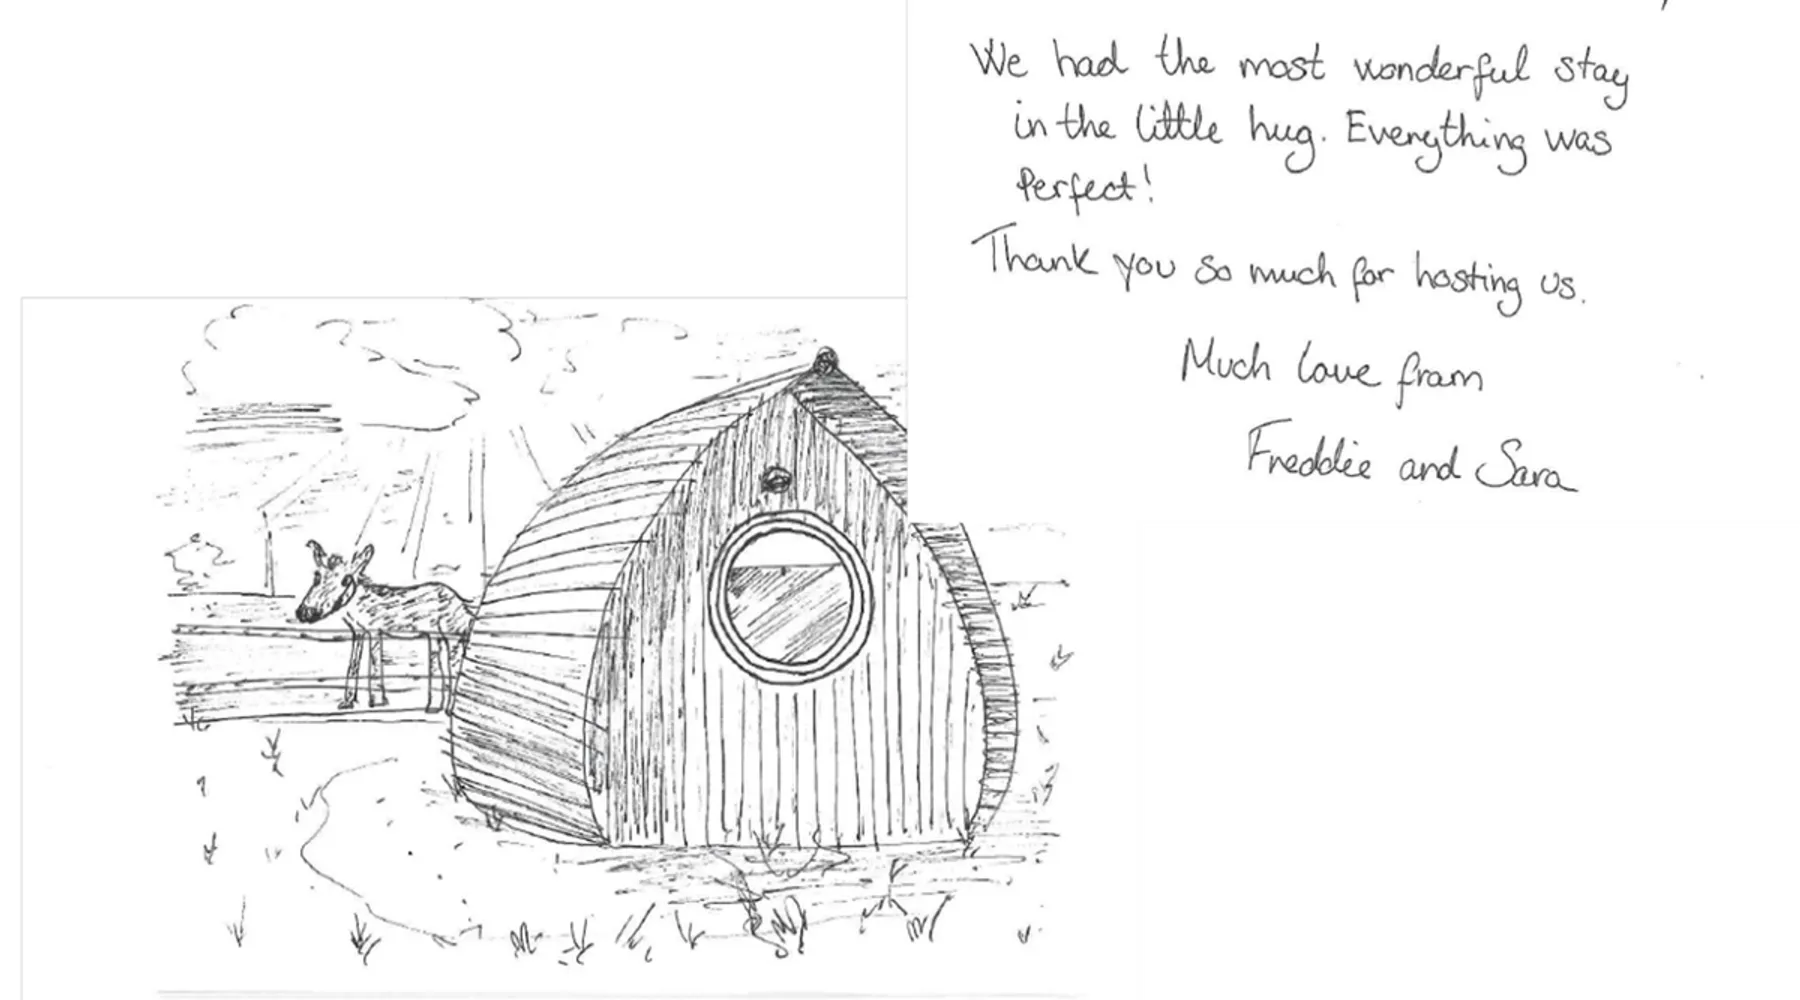 We had the most wonderful stay
in the little hug. Everything was
Perfect!
Thank you so much for hosting us.
Much love from
Freddie and Sara